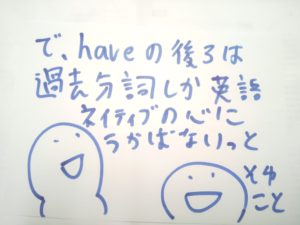 で、haveの後ろは
過去分詞しか英語
ネイティブの心に
うかばないっと
そゆ
こと